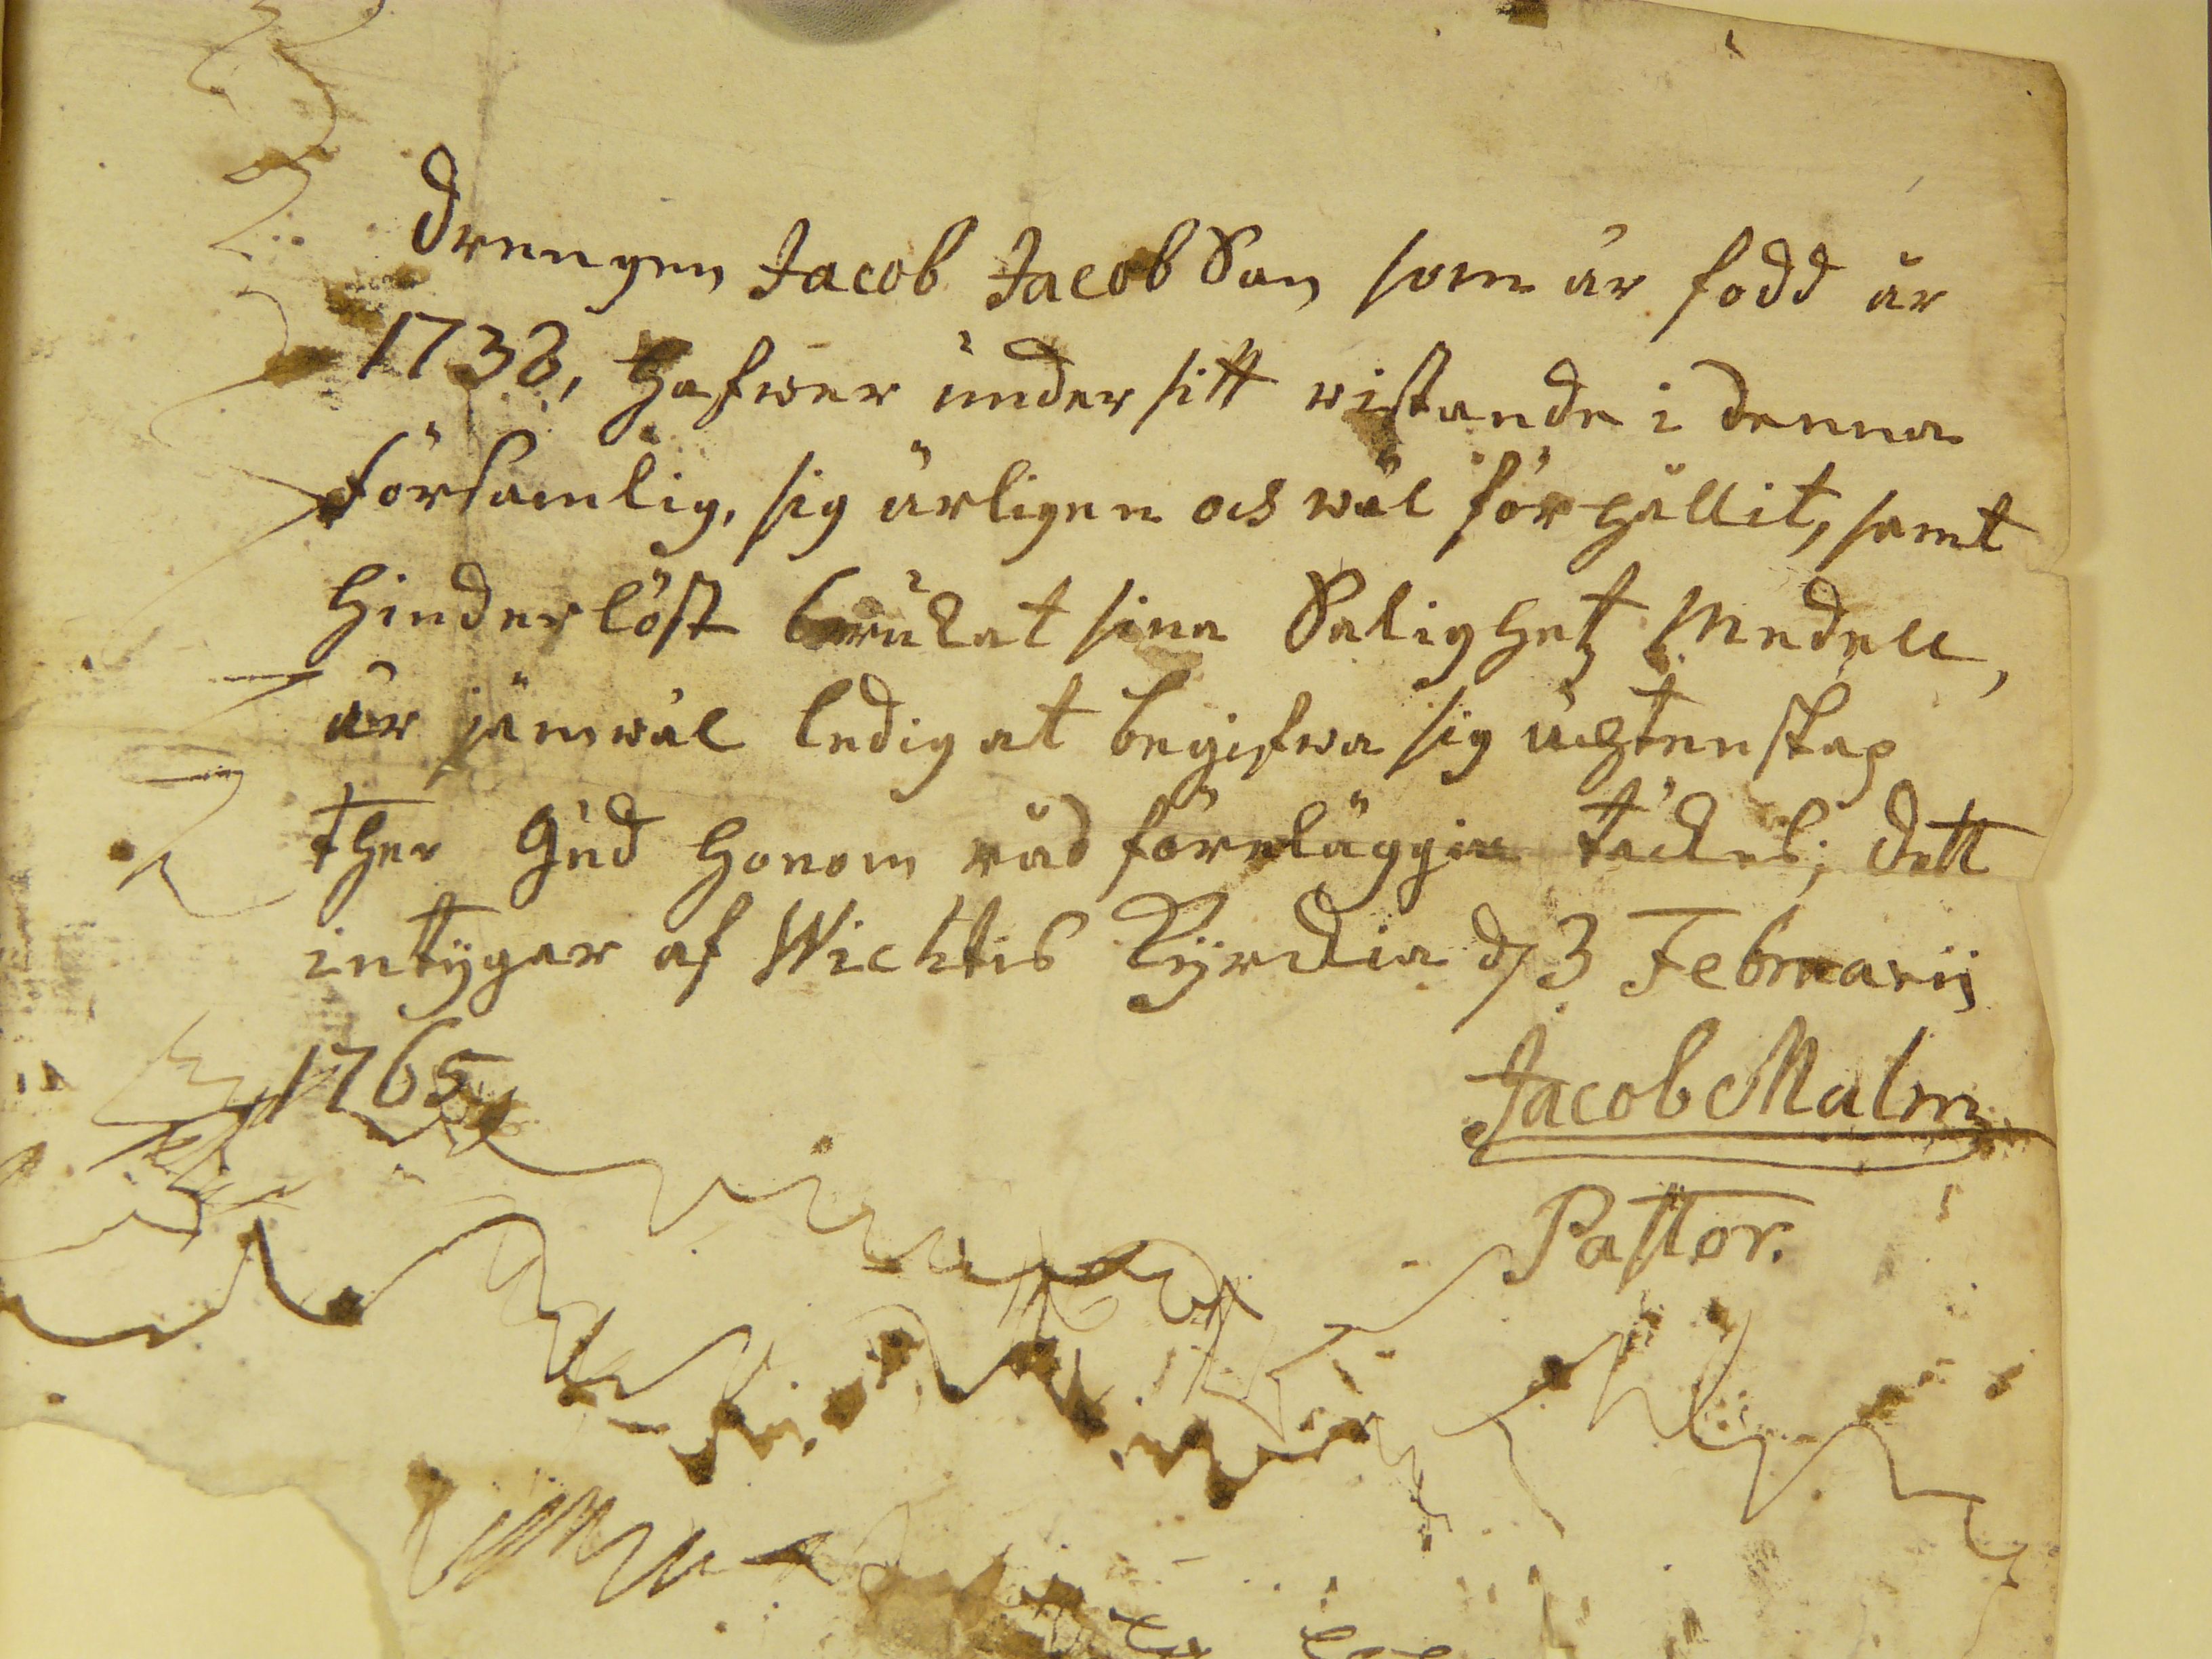 Drengen Jacob JacobSon som är född år
1738, hafwer under sitt wistande i denna
församlig, sig ärligen och wäl förhållit, samt
hinderlöst brukat sina Salighetz Medell,
är jämwäl ledig at begifwa sig ächtenskap
ther Gud honom råd föreläggia täckes; dett
intÿgar af Wichtis Kÿrckia d/ 3 Februarij
1765
Jacob Malm
Pastor.